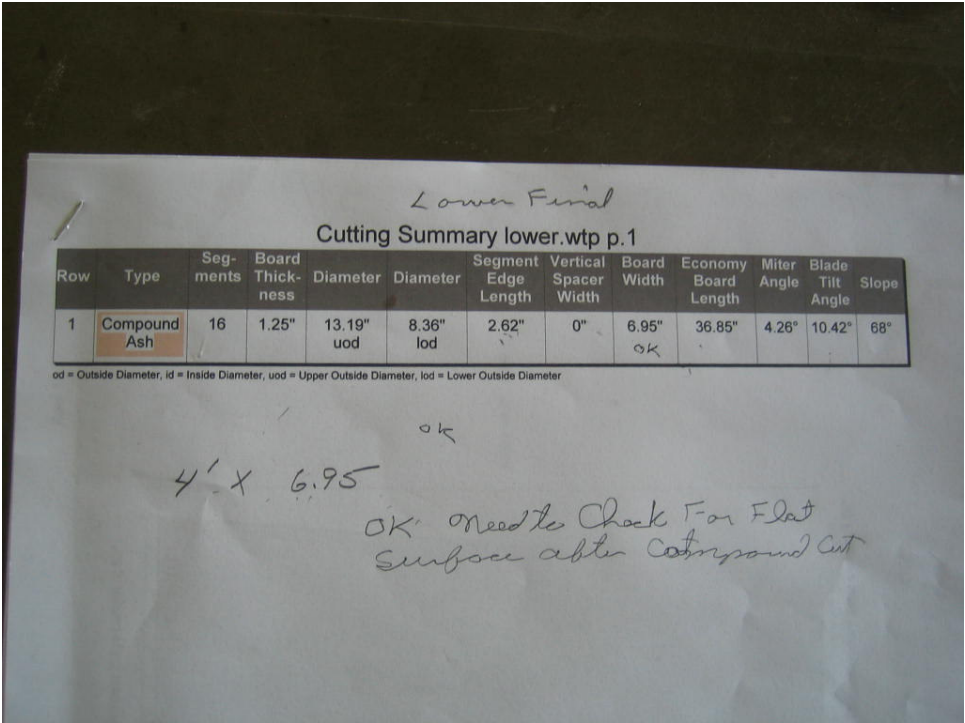 Lower Final
Cutting Summary lower.wtp p.1
Row Type Seg-ments Board Thick-ness Diameter Diameter Segment Edge Length Vertical Spacer Width Board Width Economy Board Length Miter Angle Blade Tilt Angle Slope
1 Compound Ash 16 1.25" 13.19" uod 8.36" lod 2.62" 0" 6.95" 36.85" 4.26° 10.42° 68°
OK
od = Outside Diameter, id = Inside Diameter, uod = Upper Outside Diameter, lod = Lower Outside Diameter
OK
4' X 6.95
OK Need to Check For Flat
Surface after Compound Cut